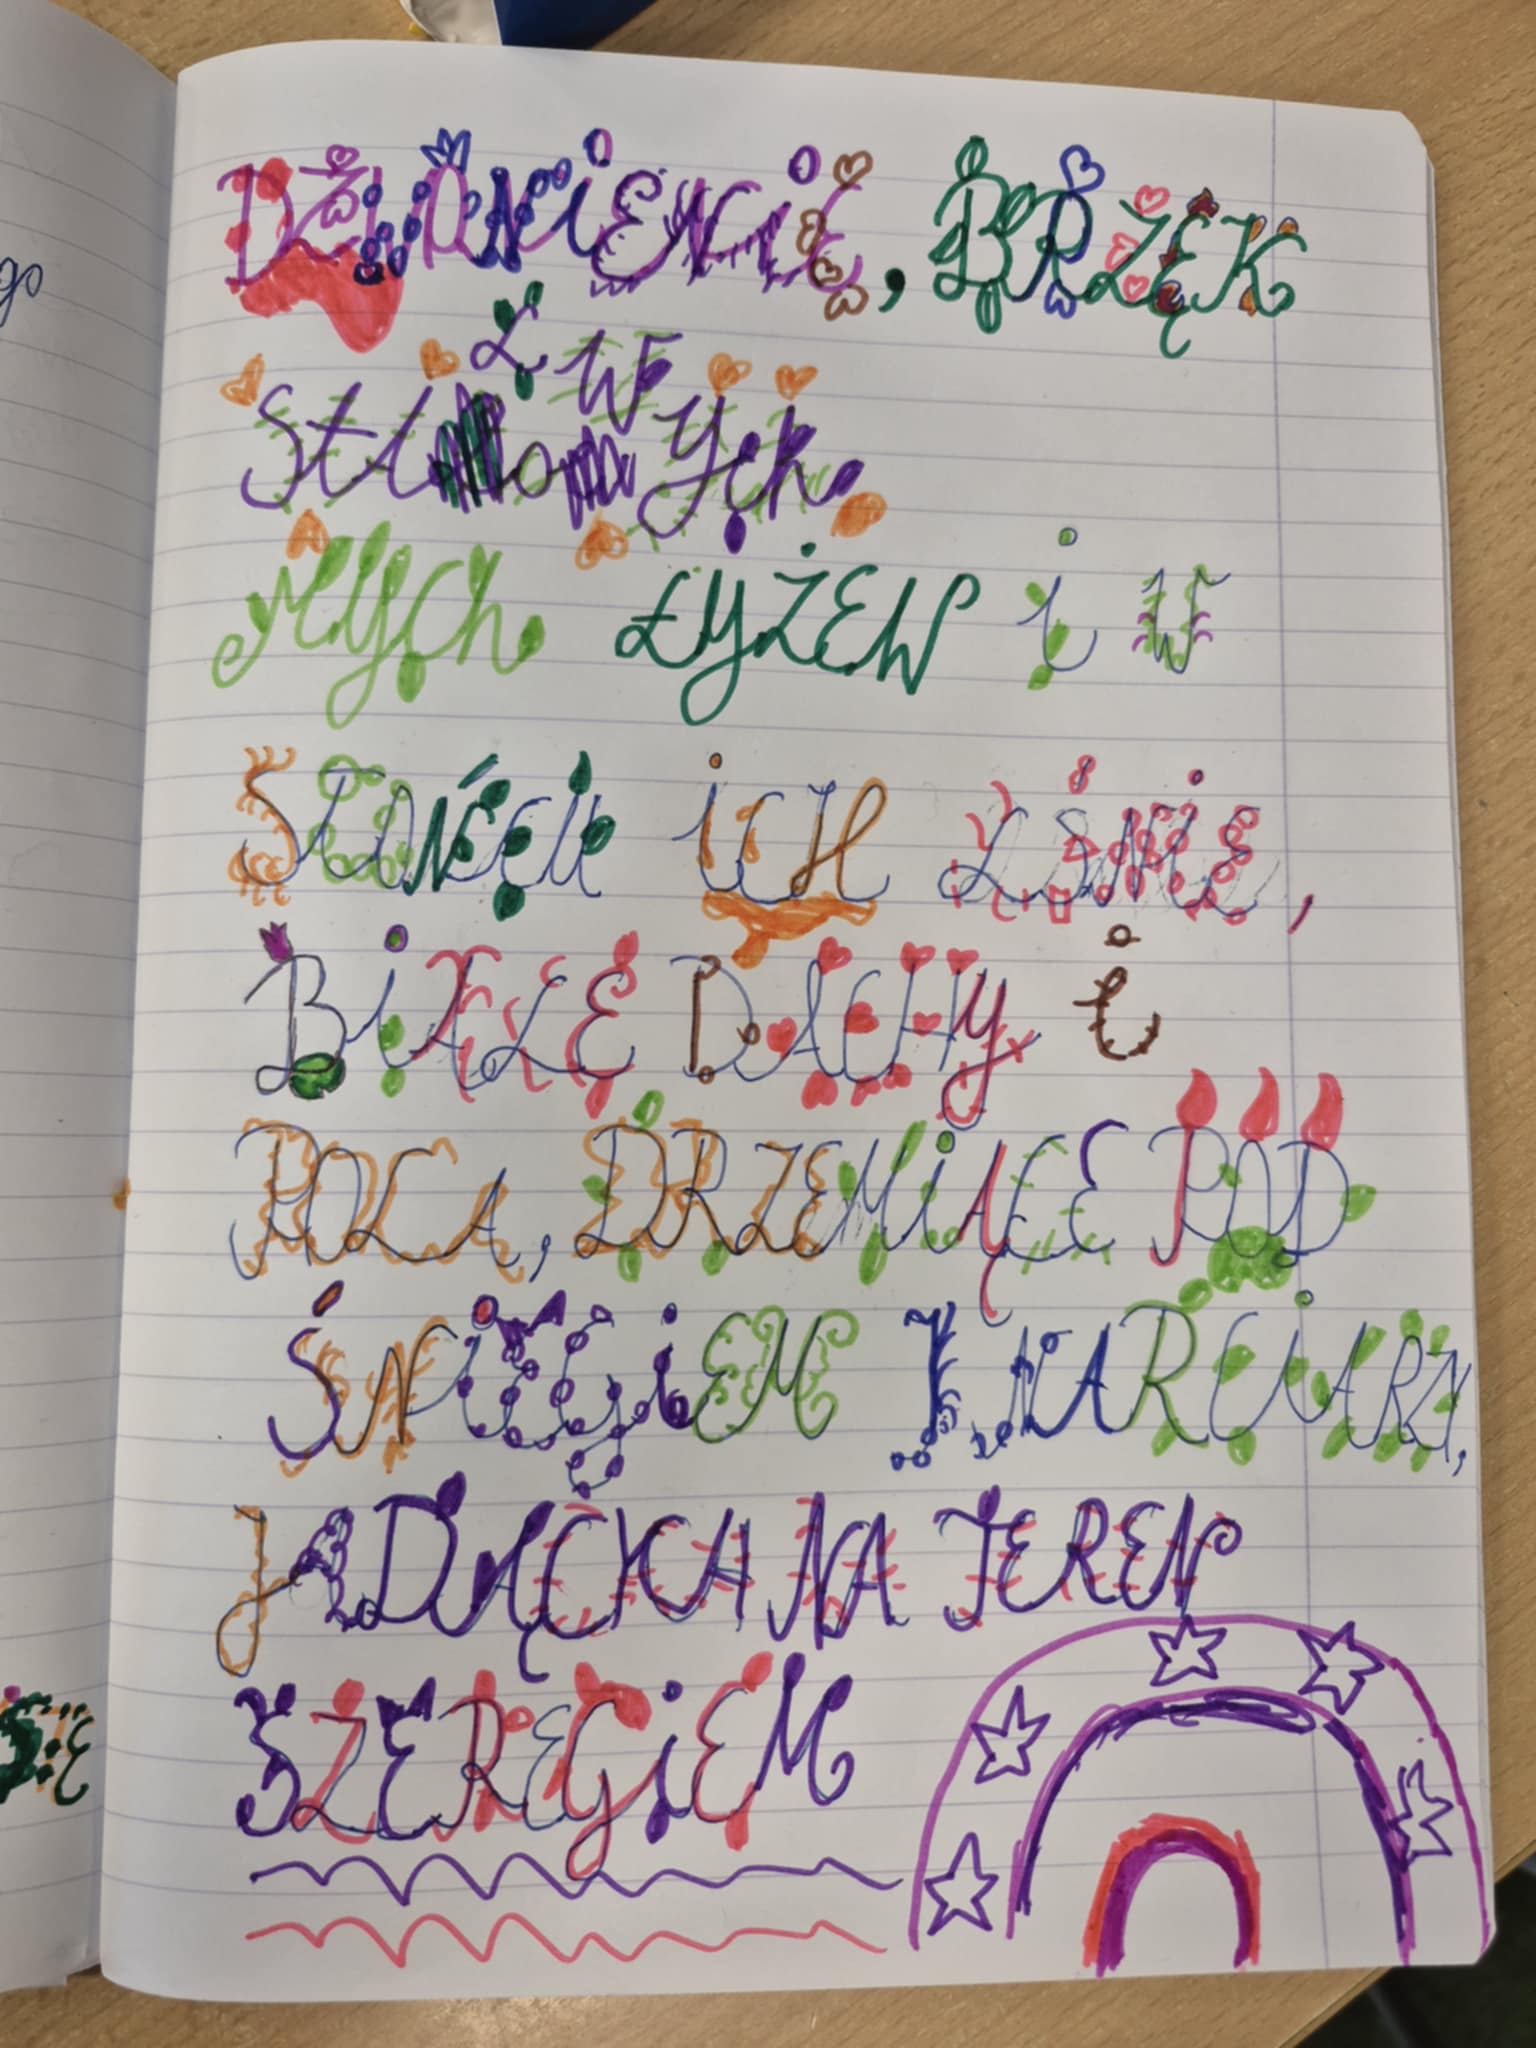 DŹWONIENIE, BRZĘK
STALOWYCH
MYCH ŁYŻEW i W
SŁOŃCU ICH LŚNIE,
BIAŁE DACHY i
POLA, DRZEMIĄCE POD
ŚNIEGIEM I NARCIARZY,
JADĄCYCH NA TEREN
SZEREGIEM